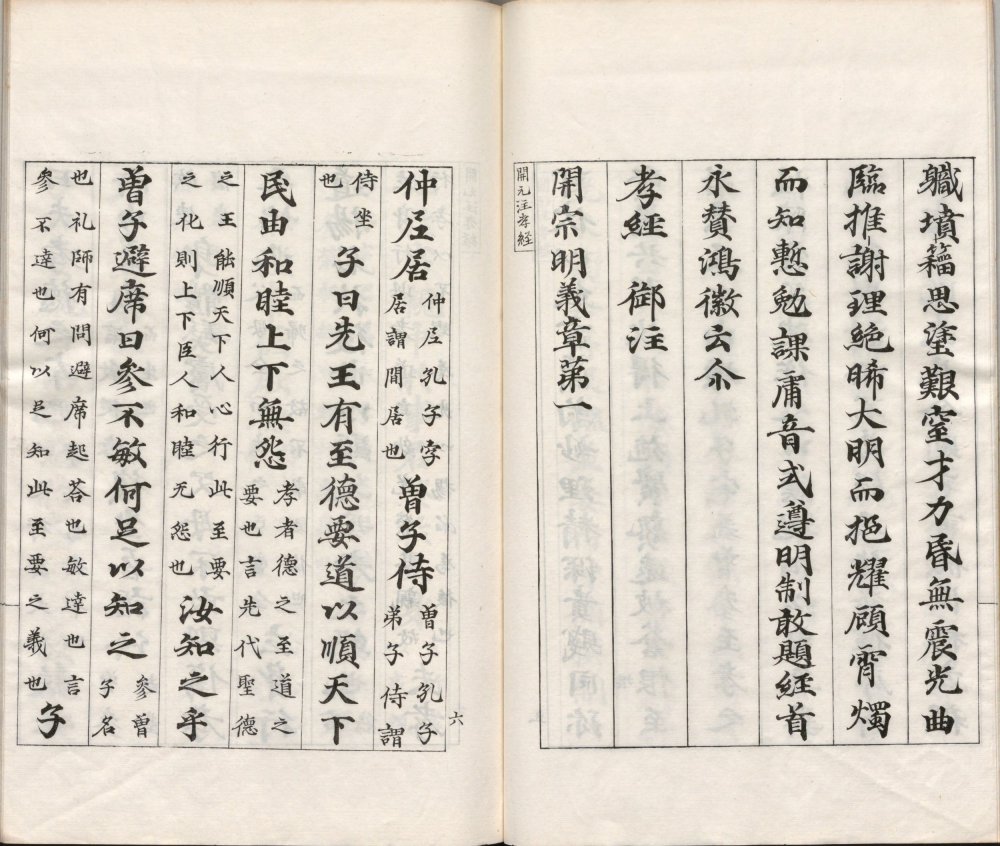 軄墳籍思塗艱窒才力昬無震光曲
臨推謝理絶晞大明而挹耀顧霄燭
而知慙勉課庸音式遵明制敢題經首
永賛鴻徽云尒
孝經 御注
開宗明義章第一
開元注孝経
六
仲尼居 仲尼孔子字 居謂間居也 曽子侍 曽子孔子 弟子侍謂
侍坐 也 子曰先王有至德要道以順天下
民由和睦上下無怨 孝者德之至道之 要也言先代聖德
之王能順天下人心行此至要 之化則上下臣人和睦无怨也 汝知之乎
曽子避席曰參不敏何足以知之 參曽 子名
也礼師有問避席起荅也敏達也言 參不達也何以足知此至要之義也 子